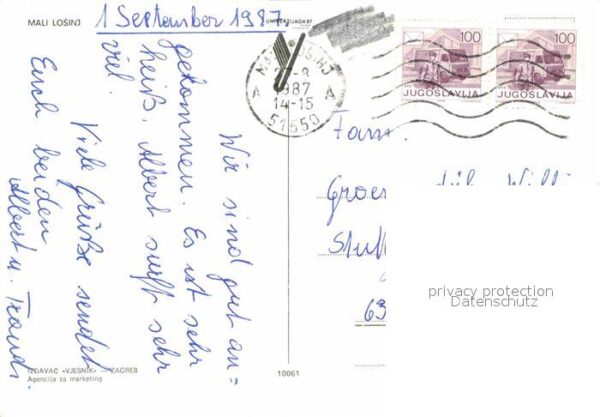 MALI LOŠINJ
1 September 1987.
Wir sind gut an=
gekommen. Es ist sehr
heiß. Albert surft sehr
viel.
Viele Grüße sendet
Euch beiden
Albert u. Traudi.
IZDAVAČ «VJESNIK» — ZAGREB
Agencija za marketing
10061
UNIVERZIJADA 87
1987
14-15
A A
51550
100 100
JUGOSLAVIJA JUGOSLAVIJA
Fam.
63
privacy protection
Datenschutz